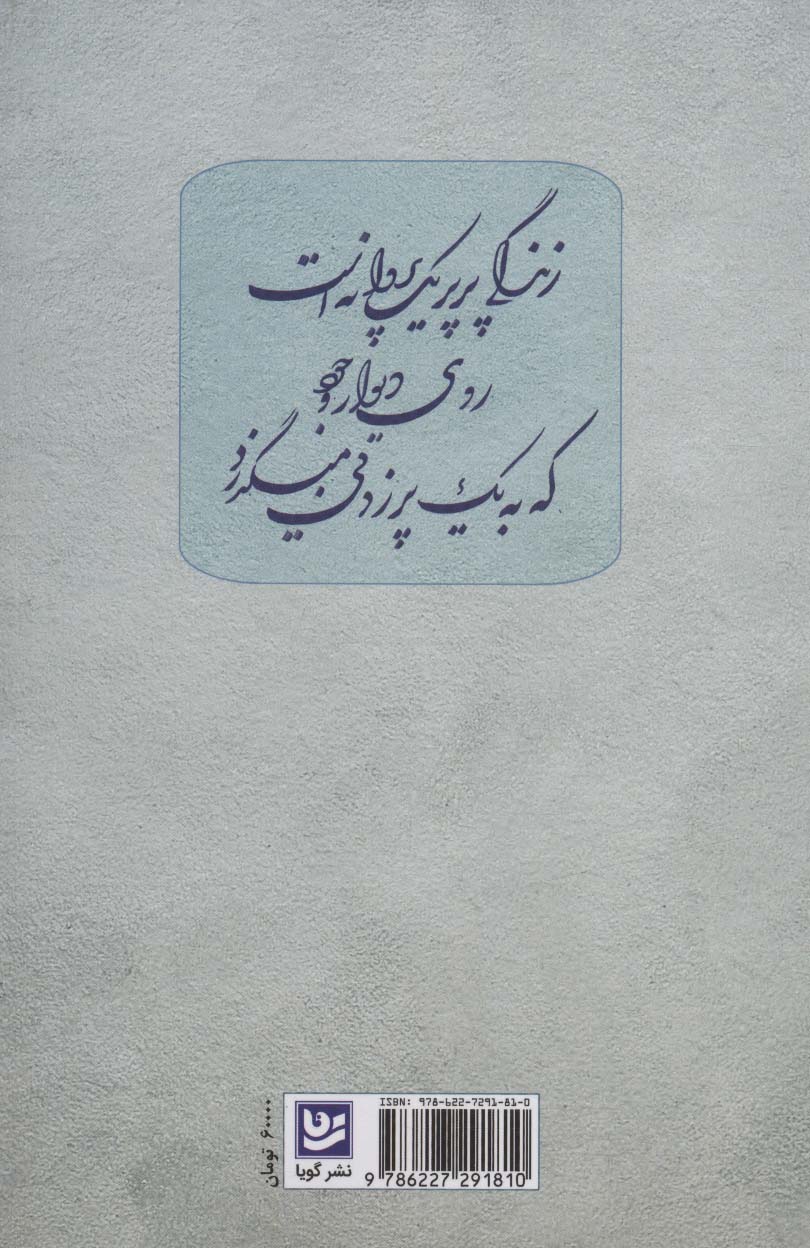 زندگی پرپر یک پروانه است
روی دیوار وجود
که به یک پر زدنی می‌گذرد
ISBN: 978-622-7291-81-0
9 786227 291810
نشر گویا
۶۰۰۰۰ تومان